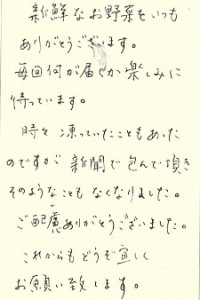 新鮮なお野菜をいつも
ありがとうございます。
毎回何が届くか楽しみに
待っています。
時々凍っていたこともあった
のですが新聞で包んで頂き
そのようなこともなくなりました。
ご配慮ありがとうございました。
これからもどうぞ宜しく
お願い致します。